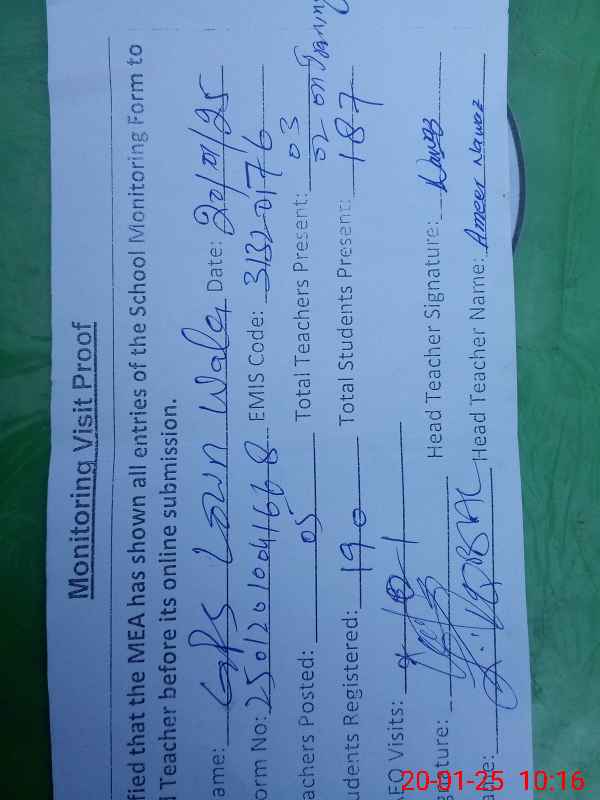 Monitoring Visit Proof
fied that the MEA has shown all entries of the School Monitoring Form to
d Teacher before its online submission.
ame: GPS Date: 20/01/25
orm No: 25012010041668 EMIS Code: 31320176
achers Posted: 05 Total Teachers Present: 03
02 on Training
udents Registered: 190 Total Students Present: 187
EO Visits:
gnature: Head Teacher Signature: Nawaz
ame: Head Teacher Name: Ameer Nawaz
20-01-25 10:16